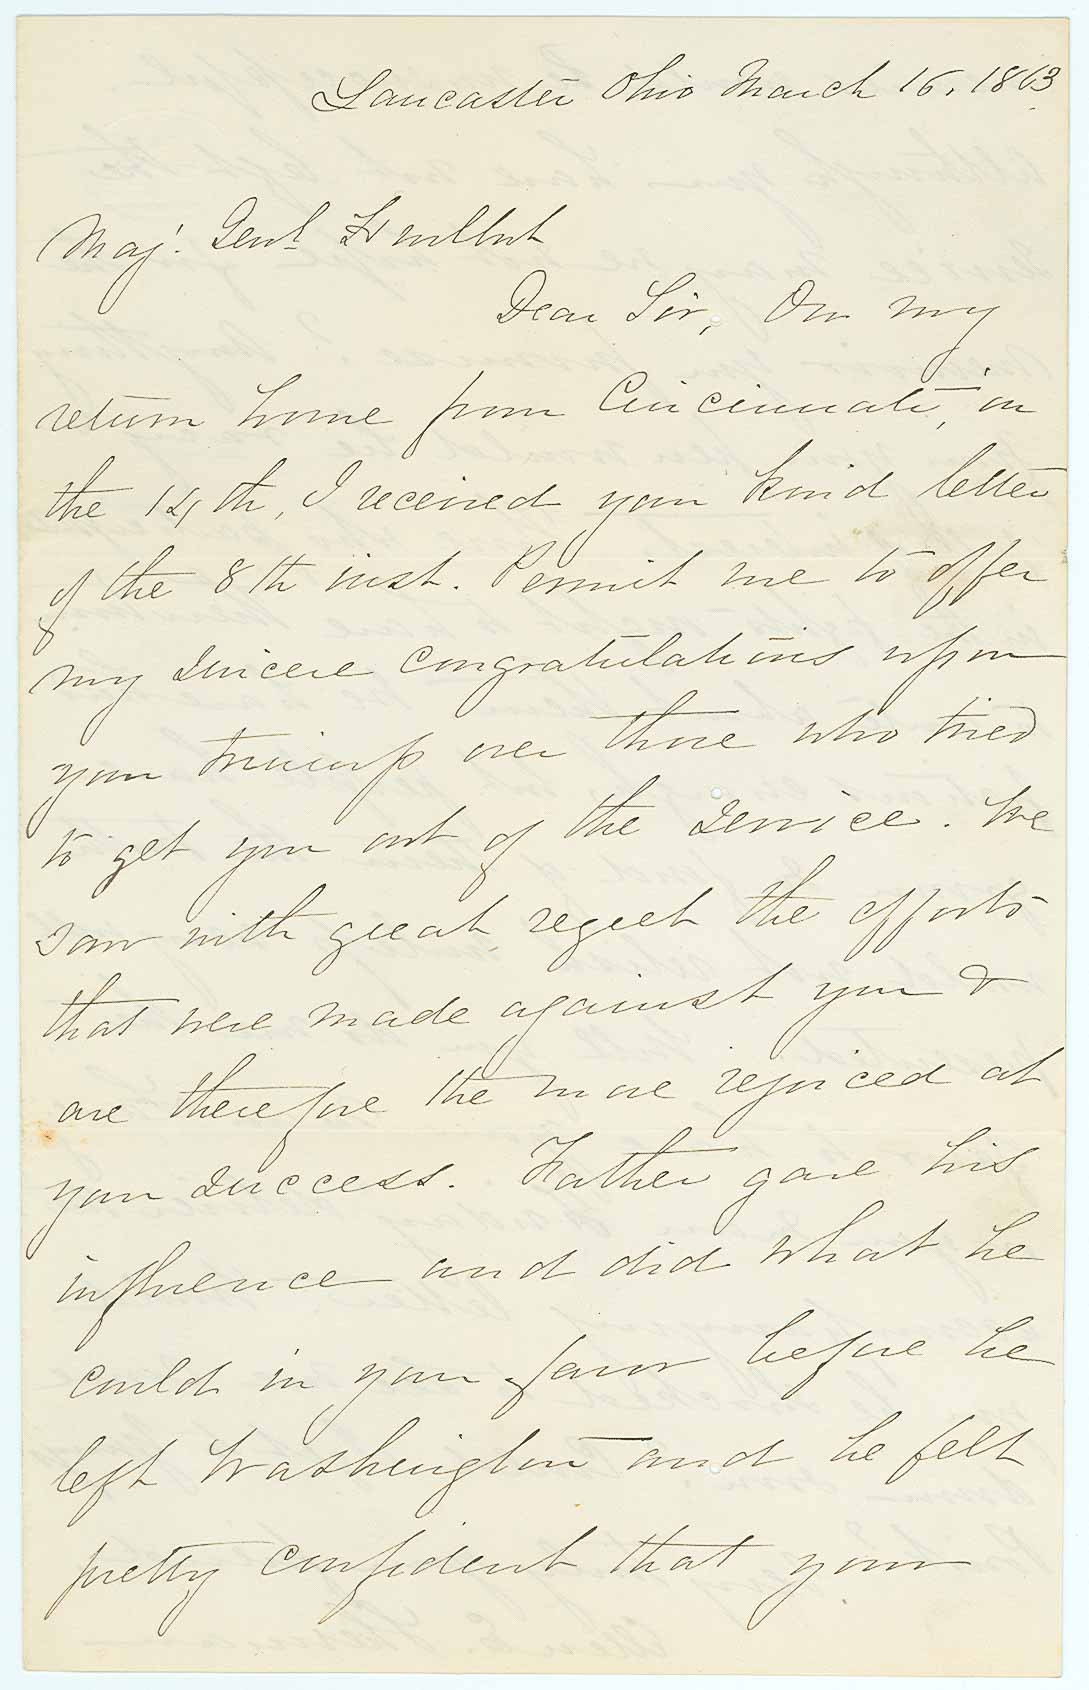 Lancaster Ohio March 16, 1863
Maj. Genl Hurlbut
Dear Sir, On my
return home from Cincinnati, on
the 14th, I received your kind letter
of the 8th inst. Permit me to offer
my sincere congratulations upon
your triumph over those who tried
to get you out of the service. We
saw with great regret the efforts
that were made against you &
are therefore the more rejoiced at
your success. Father gave his
influence and did what he
could in your favor before he
left Washington and he felt
pretty confident that your